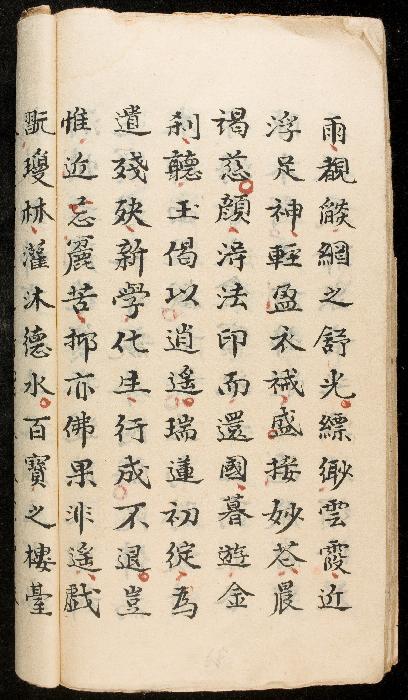 雨觀燄網之舒光縹緲雲霞近
浮足神輕盈衣裓盛接妙花晨
謁慈顏淂法印而還國暮遊金
刹聽玉偈以逍遙瑞蓮初綻為
遺殘殃新學化生行成不退豈
惟近忘麗苦抑亦佛果非遙戲
翫瓊林灌沐德水百寶之樓臺